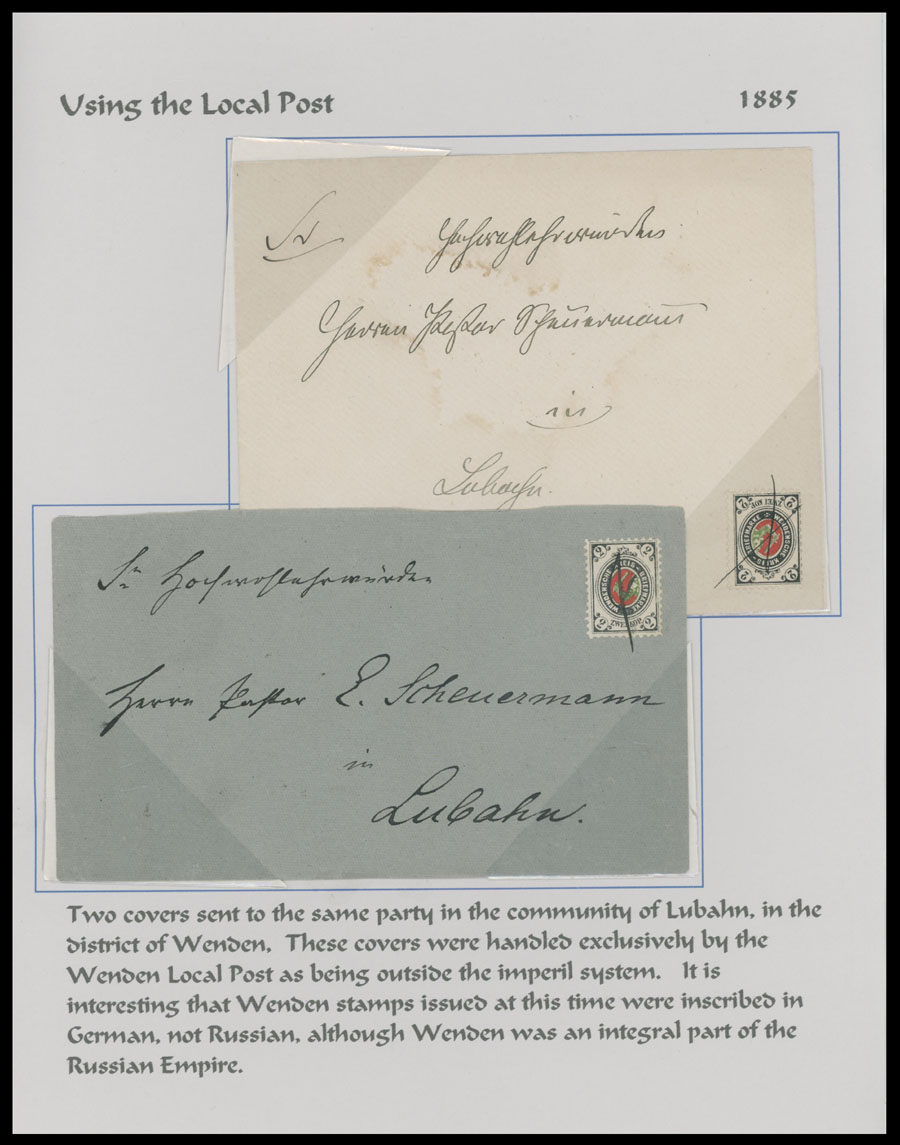 Using the Local Post
1885
Sr Hochwohlehrwürden
Herren Pastor Scheuermann
in
Lubahn.
2 ZWEI KOP. 2
WENDENSCHE KREIS-BRIEFMARKE
2 2
Sr Hochwohlehrwürden
Herrn Pastor E. Scheuermann
in
Lubahn.
2 2
WENDENSCHE KREIS-BRIEFMARKE
2 ZWEI KOP. 2
Two covers sent to the same party in the community of Lubahn, in the
district of Wenden, These covers were handled exclusively by the
Wenden Local Post as being outside the imperil system. It is
interesting that Wenden stamps issued at this time were inscribed in
German, not Russian, although Wenden was an integral part of the
Russian Empire.